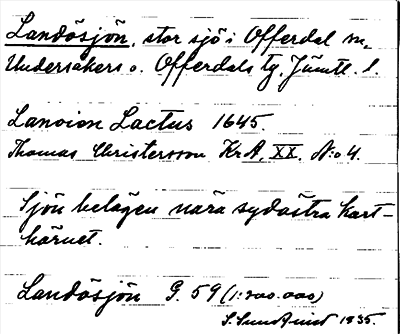 Landösjön, stor sjö i Offerdal m.
Undersåkers o. Offerdals tg. Jämtl. l.
Lanoion Lactus 1645.
Thomas Christersson KrA, XX, N:o 4.
Sjön belägen nära sydöstra kart-
hörnet.
Landösjön G. 59 (1:200.000)
S. Sundquist 1935.